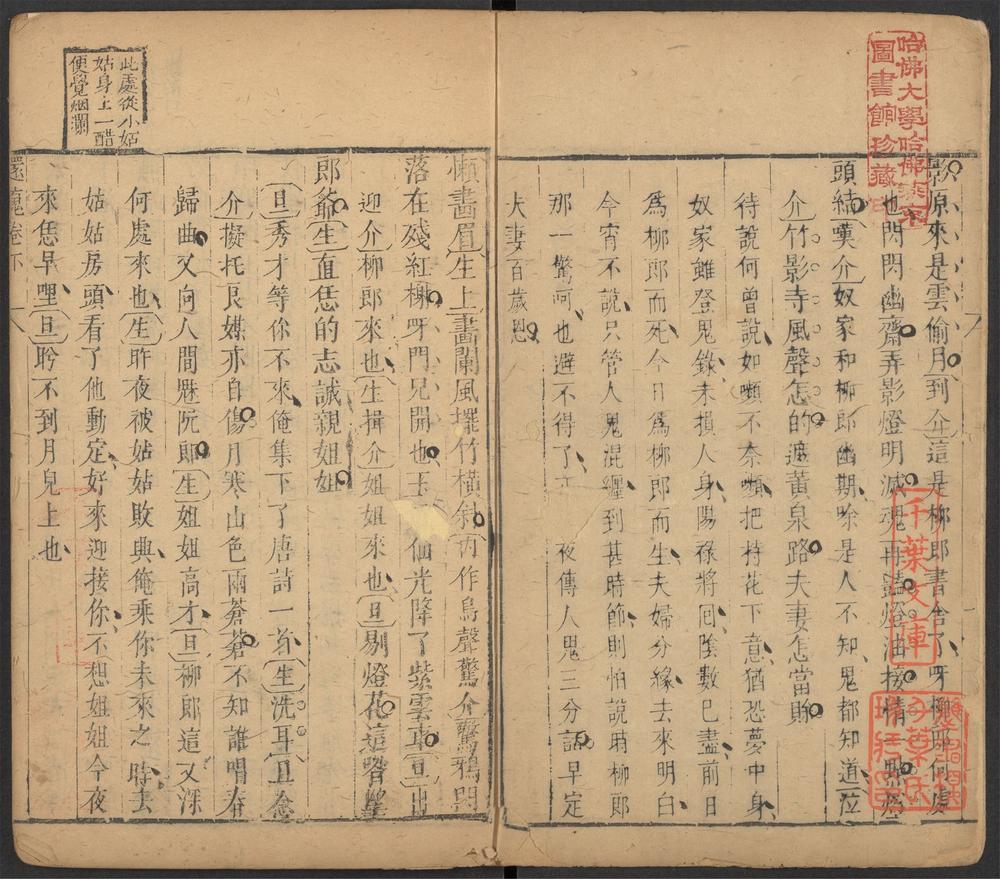 哈佛大學哈佛燕京
圖書館珍藏印
影原來是雲偷月到介這是柳郎書舍了呀柳郎何處
也閃閃幽齋弄影燈明滅魂再豔燈油接情一點燈
頭結嘆介奴家和柳郎幽期除是人不知鬼都知道泣
介竹影寺風聲怎的遮黃泉路夫妻怎當賒
待說何曾說如嚬不奈嚬把持花下意猶恐夢中身
奴家雖登鬼錄未損人身陽祿將回陰數已盡前日
爲柳郎而死今日爲柳郎而生夫婦分緣去來明白
今宵不說只管人鬼混纏到甚時節則怕說時柳郎
那一驚呵也避不得了 夜傳人鬼三分話早定
夫妻百歲恩
千葉文庫
此處從小姑
姑身上一醋
便覺烟瀾
懶畵眉生上畵闌風擺竹橫斜內作鳥聲驚介驚鴉閃
落在殘紅榭呀門兒開也玉 仙光降了紫雲車旦出
迎介柳郎來也生揖介姐姐來也旦剔燈花這咱望
郎爺生直恁的志誠親姐姐
旦秀才等你不來俺集下了唐詩一首生洗耳旦念
介擬托良媒亦自傷月寒山色兩蒼蒼不知誰唱春
歸曲又向人間魅阮郎生姐姐高才旦柳郎這又深
何處來也生昨夜被姑姑敗興俺乘你未來之時去
姑姑房頭看了他動定好來迎接你不想姐姐今夜
來恁早哩旦盻不到月兒上也
還魂卷下